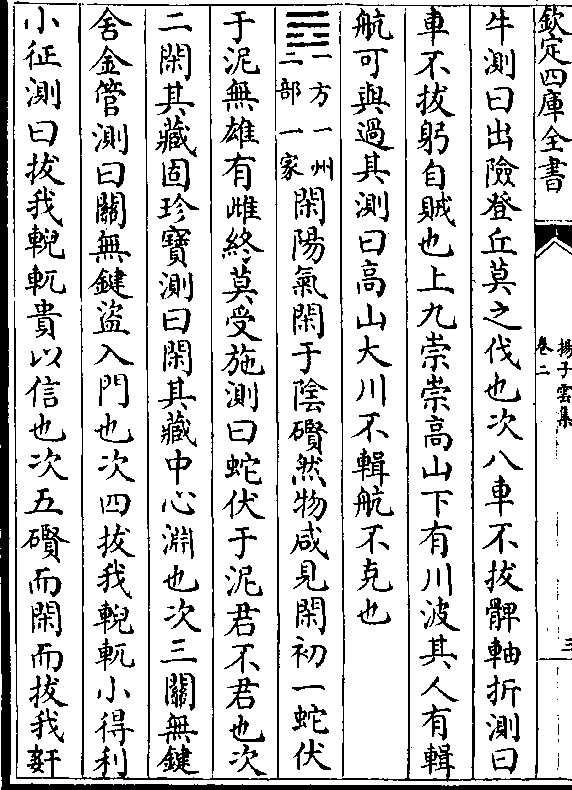 欽定四庫全書
揚子雲集
卷二
三
牛測曰出險登丘莫之伐也次八車不拔髀軸折測曰
車不拔躬自賊也上九崇崇高山下有川波其人有輯
航可與過其測曰高山大川不輯航不克也
一方一州
二部一家
閑陽氣閑于陰礥然物咸見閑初一蛇伏
于泥無雄有雌終莫受施測曰蛇伏于泥君不君也次
二閑其藏固珍寶測曰閑其藏中心淵也次三關無鍵
舍金管測曰關無鍵盜入門也次四拔我輗軏小得利
小征測曰拔我輗軏貴以信也次五礥而閑而拔我姧